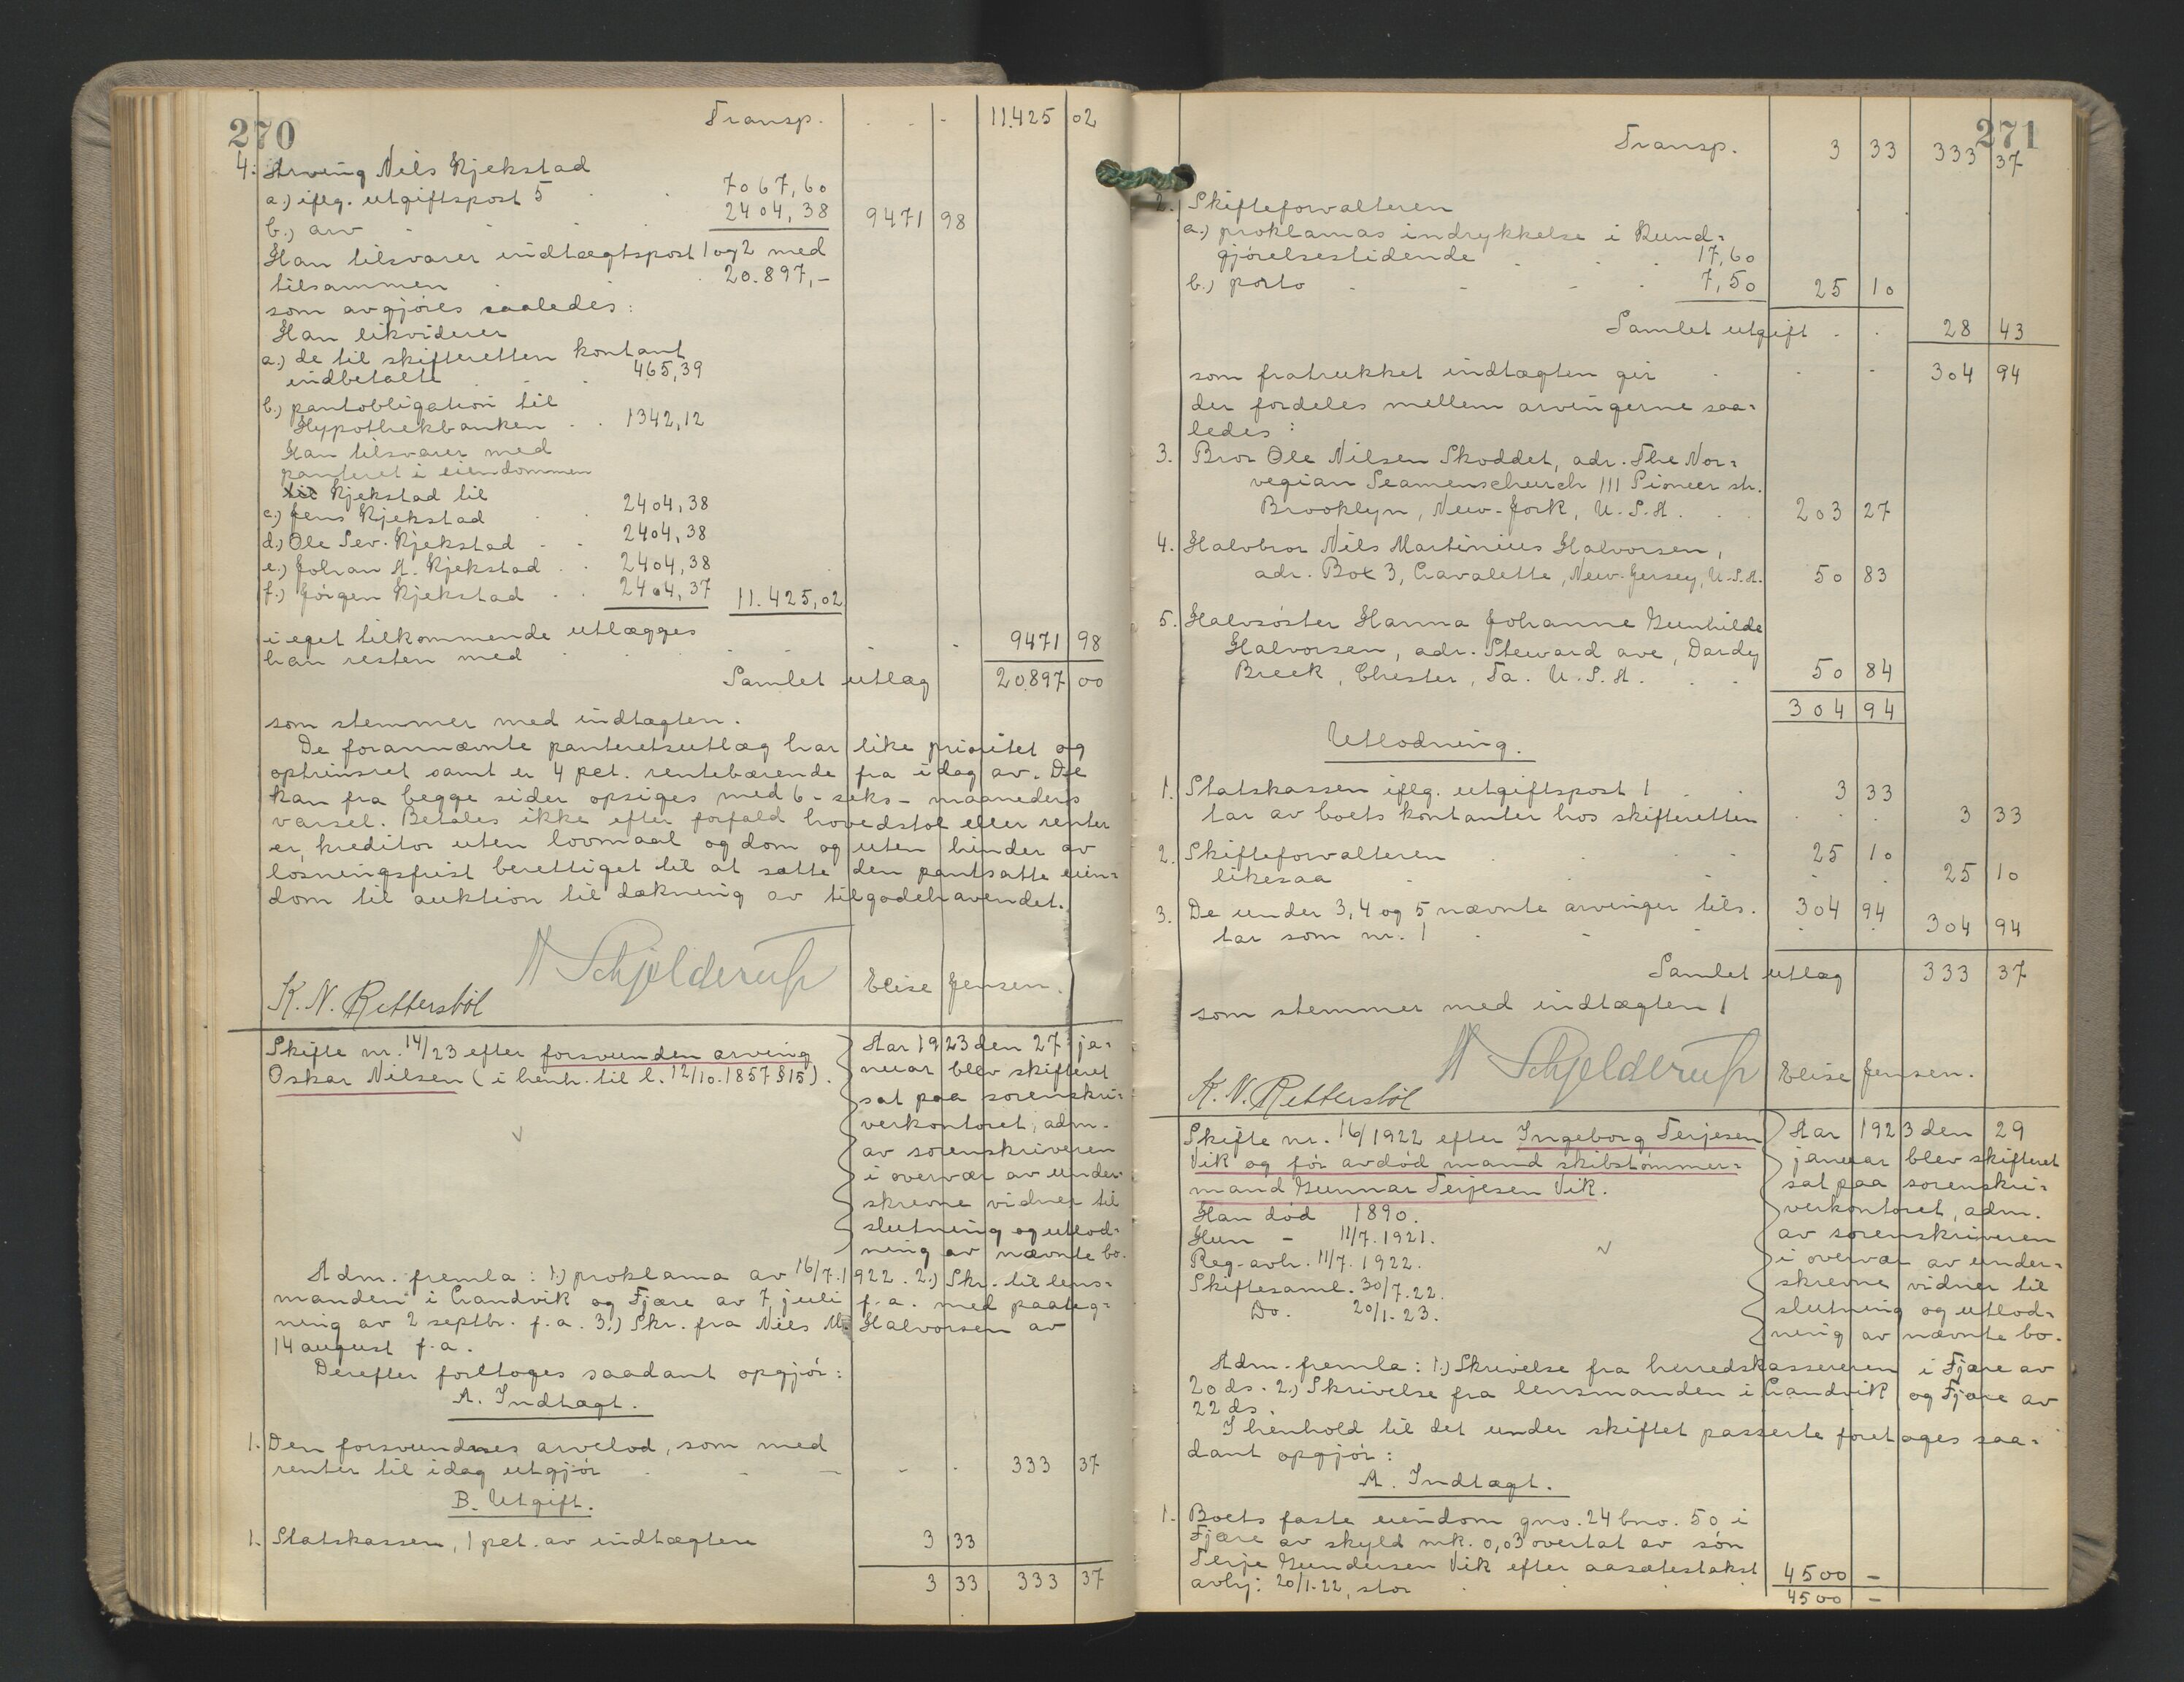 270
Transp. - - - 11.425 02
4. Arving Nils Kjekstad
a.) iflg. utgiftspost 5 . . 7067,60
b.) arv . . . . 2404,38 9471 98
Han tilsvarer indtægtspost 1 og 2 med
tilsammen . . 20.897,-
som avgjøres saaledes:
Han likviderer
a.) de til skifteretten kontant
indbetalte . . . 465,39
b.) pantobligation til
Hypothekbanken . . 1342,12
Han tilsvarer med
panteret i eiendommen
Kjekstad til
c.) Jens Kjekstad . . 2404,38
d.) Ole Sev. Kjekstad . . 2404,38
e.) Johan A. Kjekstad . . 2404,38
f.) Jörgen Kjekstad . . 2404,37 11.425,02
i eget tilkommende utlægges
han resten med . . . . . 9471 98
Samlet utlæg 20.897 00
som stemmer med indtægten.
De forannævnte panteretsutlæg har like prioritet og
optrinsret samt er 4 pct. rentebærende fra idag av. De
kan fra begge sider opsiges med 6 - seks - maaneders
varsel. Betales ikke efter forfald hovedstol eller renter
er kreditor uten lovmaal og dom og uten hinder av
løsningsfrist berettiget til at sætte den pantsatte eien=
dom til auktion til dækning av tilgodehavendet.
A Schjelderup
K. N. Rettersböl Elise Jensen.
Skifte nr. 14/23 efter forsvunden arving
Oskar Nilsen (i henh. til l. 12/10.1857 § 15).
Aar 1923 den 27 ja=
nuar blev skifteret
sat paa sorenskri=
verkontoret, adm.
av sorenskriveren
i overvær av under=
skrevne vidner til
slutning og utlod=
ning av nævnte bo.
Adm. fremla: 1.) proklama av 16/7.1922. 2.) Skr. til lens=
manden i Landvik og Fjære av 7 juli f.a. med paateg=
ning av 2 septbr. f.a. 3.) Skr. fra Niels M. Halvorsen av
14 august f.a.
Derefter foretoges saadant opgjör:
A. Indtægt.
1. Den forsvundnes arvelod, som med
renter til idag utgjör . - - - . 333 37
B. Utgift.
1. Statskassen, 1 pct. av indtægten 3 33
3 33 333 37
271
Transp. 3 33 333 37
2. Skifteforvalteren
a.) proklamas indrykkelse i Kund=
gjörelsestidende . . . 17,60
b.) porto - - - . 7,50 25 10
Samlet utgift . . 28 43
som fratrukket indtægten gir . . - 304 94
der fordeles mellem arvingerne saa=
ledes:
3. Bror Ole Nilsen Skoddet, adr. The Nor=
vegian Seamenschurch 111 Pioneer str.
Brooklyn, New-Jork, U.S.A. . . 203 27
4. Halvbror Nils Martinius Halvorsen,
adr. Box 3, Cavalette, New-Jersey, U.S.A. 50 83
5. Halvsöster Hanna Johanne Gunhilde
Halvorsen, adr. Steward ave, Dardy
Breek, Chester, Ta. U.S.A. . . 50 84
304 94
Utlodning.
1. Statskassen iflg. utgiftspost 1 . . 3 33
tar av boets kontanter hos skifteretten . . . 3 33
2. Skifteforvalteren . . - 25 10
likesaa . . . . . 25 10
3. De under 3, 4 og 5 nævnte arvinger tils. 304 94
tar som nr. 1 . - - . . 304 94
Samlet utlæg 333 37
som stemmer med indtægten 1
A Schjelderup
K. N. Rettersböl Elise Jensen.
Skifte nr. 16/1922 efter Ingeborg Terjesen
Vik og för avdöd mand skibstömmer=
mand Gunnar Terjesen Vik.
Han död 1890.
Hun - 11/7.1921.
Reg-avh. 11/7.1922.
Skiftesaml. 30/7.22.
Do. 20/1.23.
Aar 1923 den 29
januar blev skifteret
sat paa sorenskri=
verkontoret, adm.
av sorenskriveren
i overvær av under=
skrevne vidner til
slutning og utlod=
ning av nævnte bo.
Adm. fremla: 1.) Skrivelse fra herredskassereren i Fjære av
20 ds. 2.) Skrivelse fra lensmanden i Landvik og Fjære av
22 ds.
I henhold til det under skiftet passerte foretages saa=
dant opgjör:
A. Indtægt.
1. Boets faste eiendom gno. 24 bno. 50 i
Fjære av skyld mk. 0,03 overtat av sön
Terje Gundersen Vik efter aasætestakst
avhj: 20/1-22, stor . . . . 4500 -
4500 -